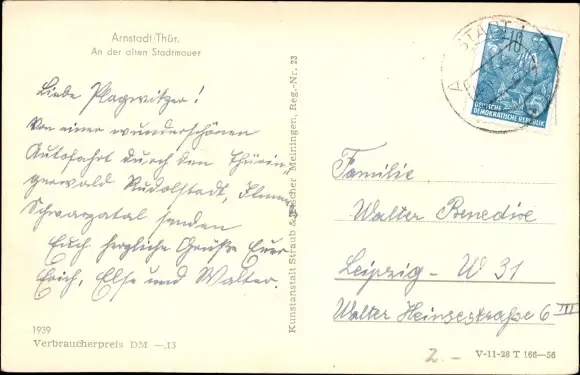 Arnstadt/Thür.
An der alten Stadtmauer
Liebe Plagwitzer!
Von einer wunderschönen
Autofahrt durch den Thürin-
gerwald Rudolstadt, Ilmenau
Schwarzatal senden
Euch herzliche Grüße Eure
Erich, Else und Walter.
1939
Verbraucherpreis DM —.13
Kunstanstalt Straub & Fischer Meiningen, Reg.-Nr. 23
ARNSTADT 1
DEUTSCHE
DEMOKRATISCHE REPUBLIK
5
Familie
Walter Benedix
Leipzig - W 31
Walter Heinsestraße 6 III
2.-
V-11-28 T 166—56